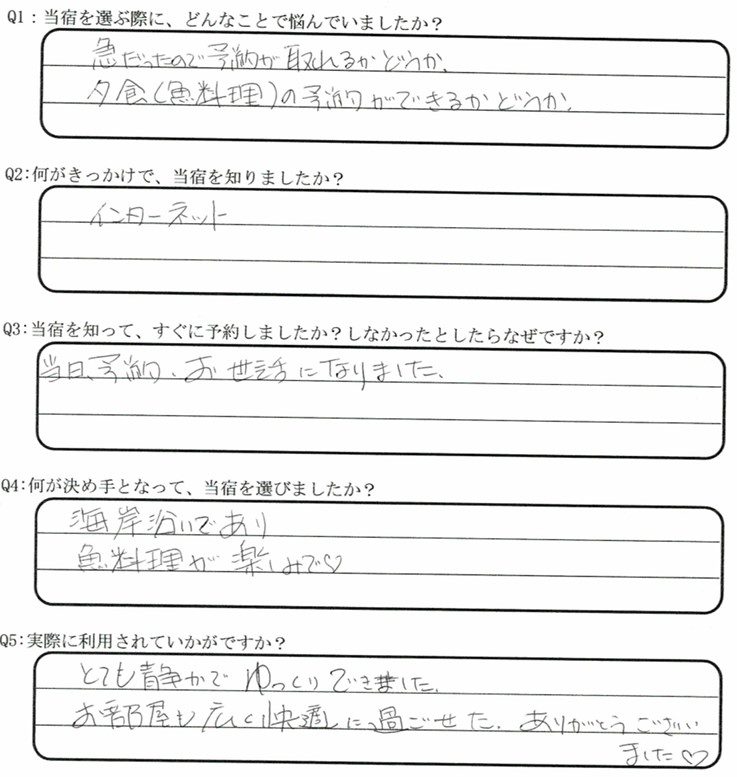 Q1：当宿を選ぶ際に、どんなことで悩んでいましたか？
急だったので予約が取れるかどうか、
夕食(魚料理)の予約ができるかどうか、
Q2：何がきっかけで、当宿を知りましたか？
インターネット
Q3：当宿を知って、すぐに予約しましたか？しなかったとしたらなぜですか？
当日、予約、お世話になりました、
Q4：何が決め手となって、当宿を選びましたか？
海岸沿いであり
魚料理が楽しみで♡
Q5：実際に利用されていかがですか？
とても静かでゆっくりできました、
お部屋も広く快適に過ごせた、ありがとうござい
ました♡